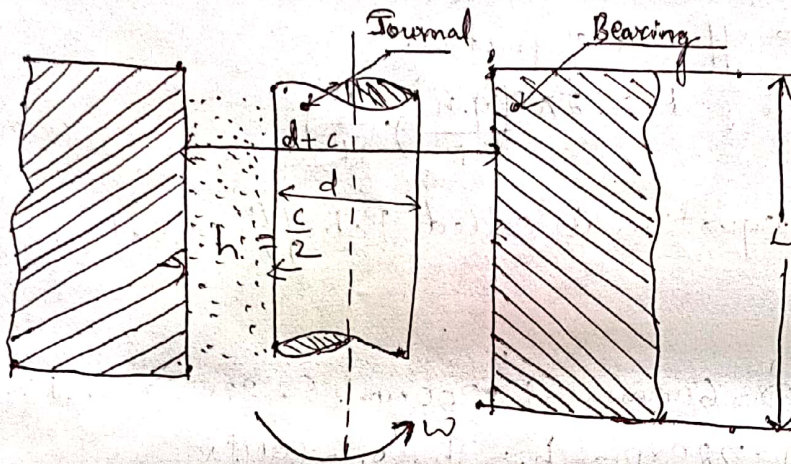 Journal
Bearing
d+c
d
h = c/2
L
ω